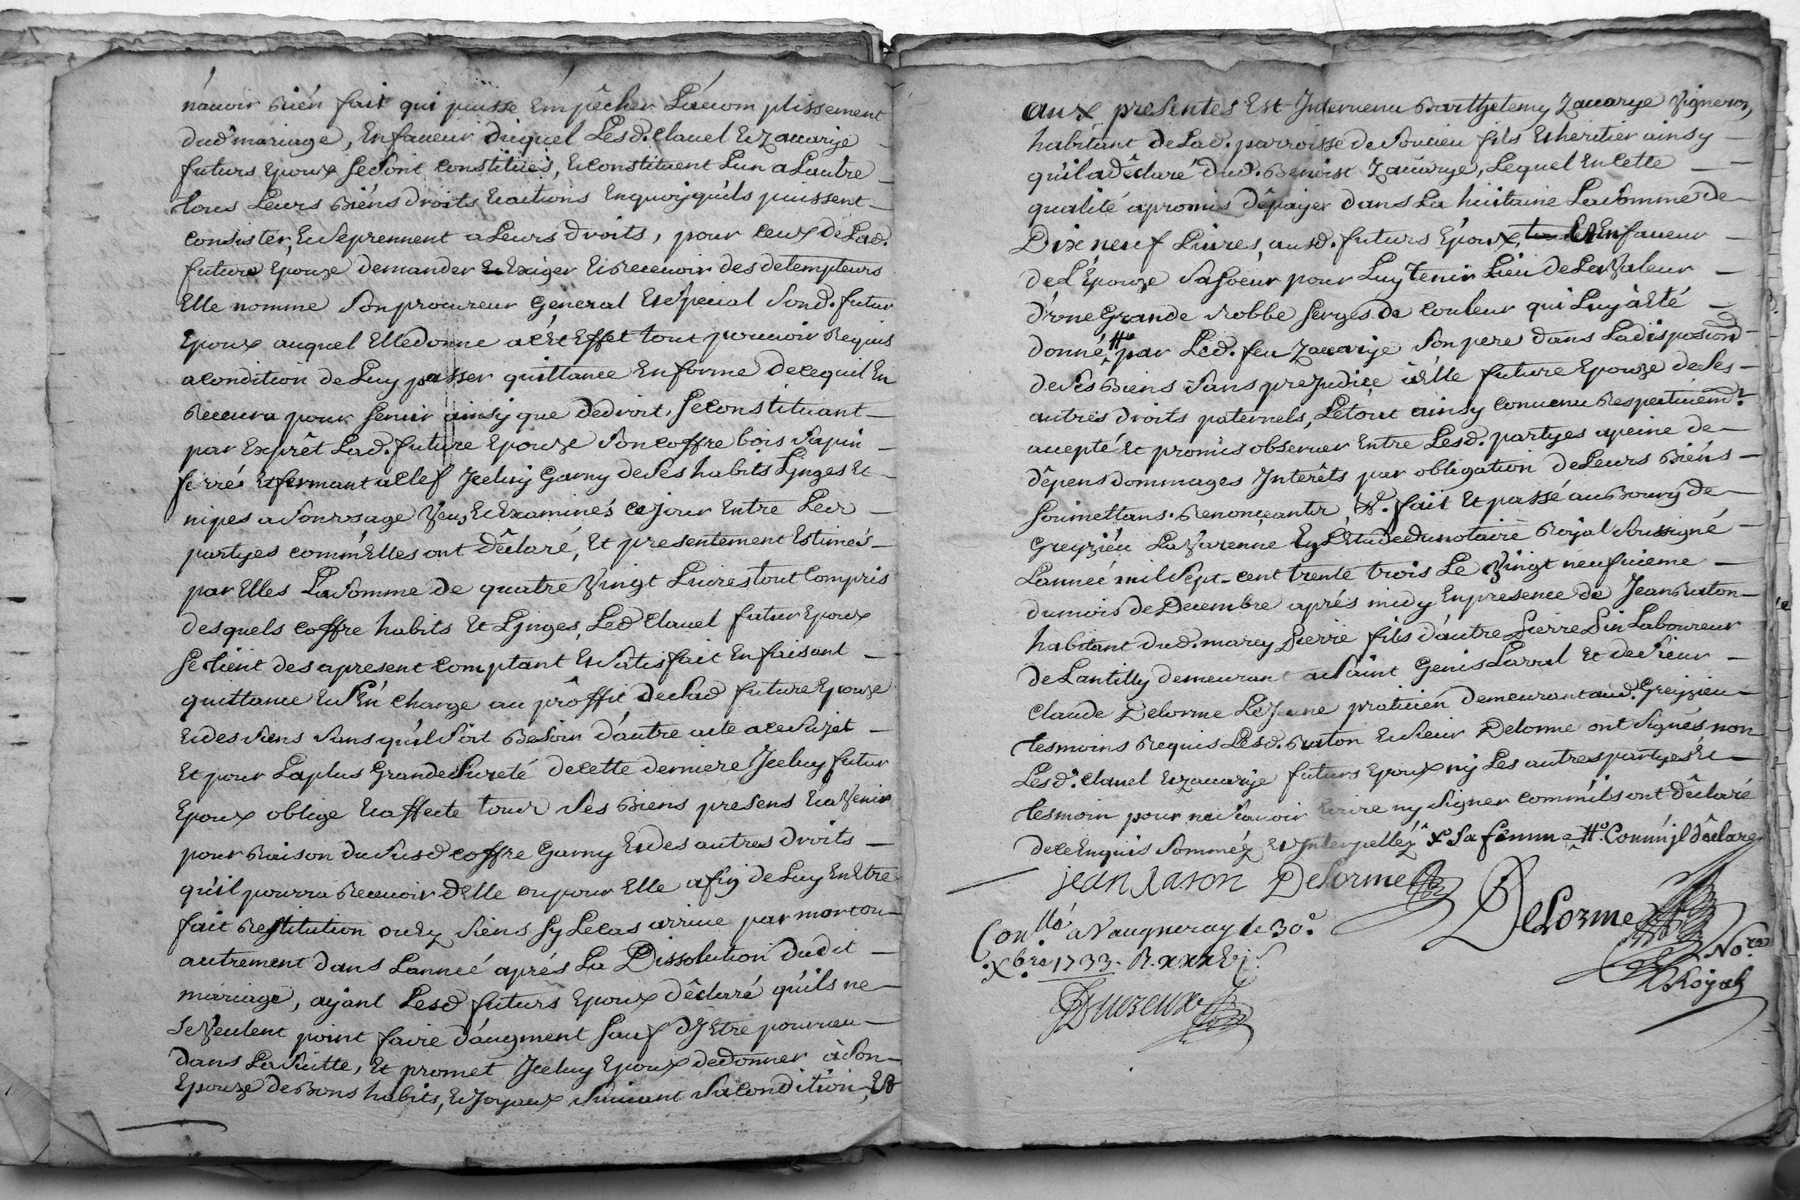 n'avoir Rién fait qui puisse Empêcher L'acomplissement
dud. mariage, En faveur duquel Lesd. Clavel Et Zacarye
futurs Epoux se sont constitués, Et constituent L'un a L'autre
tous Leurs Biéns droits Et actions En quoy qu'ils puissent
Consister, Et se prennent a Leurs droits, pour ceux de Lad.
future Epouze demander Et Exiger Et Recevoir des detempteurs
Elle nomme Son procureur General Et Special Sond. futur
Epoux auquel Elle donne a cét Effet tout pouvoir Requis
a condition de Luy passer quittance En forme de ce qu'il En
Recevra pour servir ainsy que de droit, se constituant
par Exprêt Lad. future Epouze Son coffre bois Sapin
ferré Et fermant a clef Jceluy Garny de Ses habits Lynges Et
nipes a Son usage Veus Et Examinés ce jour Entre Les
partyes comm'Elles ont dêclaré, Et presentement Estimés
par Elles La Somme de quatre Vingt Livres tout Compris
desquels coffre habits Et Lynges, Led Clavel futur Epoux
se tient des apresent comptant Et Satisfait En faisant
quittance Et S'En charge au prôffit de Lad future Epouze
Et des Siens Sans qu'il Soit Besoin d'autre acte a ce Sujet
Et pour La plus Grande Sureté de cette derniere Jceluy futur
Epoux oblige Et affecte tous Ses Biens presens Et a Venir
pour Raison du Susd coffre Garny Et des autres droits
qu'il pourra Recevoir d'Elle ou pour Elle afin de Luy En Etre
fait Restitution ou Ez Siens Sy Le cas arrive par mort ou
autrement dans L'annéé aprés La Dissolution dudit
mariage, ayant Lesd futurs Epoux dêclaré qu'ils ne
se Veulent point faire d'augment Sauf d'y Etre pourveu
dans La Suitte, Et promet Jceluy Epoux de donner à Son
Epouze de Bons habits, Et Joyaux Suivant Sa condition, Et
aux presentes Est Jntervenu Barthelemy Zacarye Vigneron,
habitant de Lad. parroisse de Soucieu fils Et heritier ainsy
qu'il a dêclaré dud. Benoist Zacarye, Lequel En cette
qualité a promis de payer dans La huitaine La Somme de
Dix neuf Livres, ausd. futurs Epoux, Et En faveur
de L'Epouze Sa Soeur pour Luy Tenir Lieu de La Valeur
d'une Grande Robbe serges de couleur qui Luy à Eté
donné # par Led. feu Zacarye Son pere dans La disposion
de Ses Biens Sans prejudice à Elle future Epouze de Ses
autres droits paternels, Le tout ainsy convenu Respectivem.t
accepté Et promis observer Entre Lesd. partyes apeine de
dêpens dommages Jnterêts par obligation de Leurs Biéns
Soumettans. Renonçant Et. fait Et passé au Bourg de
Greyziéu La Varenne En L'Etude du notaire Royal Soussigné
L'annéé mil Sept-cent trente trois Le Vingt neufvieme
du mois de Decembre aprés midy En presence de Jean Raton
habitant dud. marcy Pierre fils d'autre Pierre Laboureur
de Lantilly demeurant a Saint Genis Larval Et de Sieur
Claude Delorme Le Jeune praticién demeurant aud. Greyzieu
tesmoins Requis Lesd. Raton Et Sieur Delorme ont Signés non
Lesd. Clavel Et Zacarye futurs Epoux ny Les autres partyes Et
tesmoin pour ne Scavoir Ecrire ny Signer comm'ils ont dêclaré
de ce Enquis Sommés Et Jnterpellés x Sa femme # Comm'jl dêclare
jean Raton Delorme
Delorme
No.re
Royal
Con.llé a Vaugneray le 30.e
Xbre 1733. R.